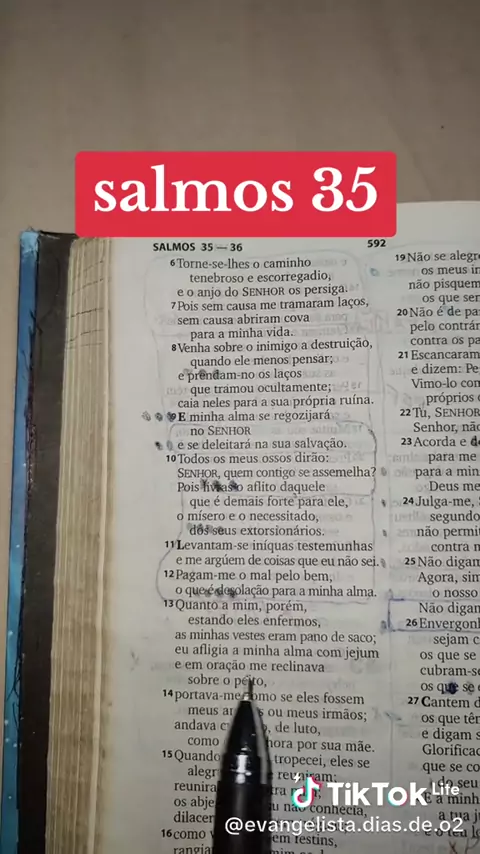 salmos 35
SALMOS 35 — 36
592
6 Torne-se-lhes o caminho
tenebroso e escorregadio,
e o anjo do SENHOR os persiga.
7 Pois sem causa me tramaram laços,
sem causa abriram cova
para a minha vida.
8 Venha sobre o inimigo a destruição,
quando ele menos pensar;
e prendam-no os laços
que tramou ocultamente;
caia neles para a sua própria ruína.
9 E minha alma se regozijará
no SENHOR
e se deleitará na sua salvação.
10 Todos os meus ossos dirão:
SENHOR, quem contigo se assemelha?
Pois livras o aflito daquele
que é demais forte para ele,
o mísero e o necessitado,
dos seus extorsionários.
11 Levantam-se iníquas testemunhas
e me argúem de coisas que eu não sei.
12 Pagam-me o mal pelo bem,
o que é desolação para a minha alma.
13 Quanto a mim, porém,
estando eles enfermos,
as minhas vestes eram pano de saco;
eu afligia a minha alma com jejum
e em oração me reclinava
sobre o peito,
14 portava-me como se eles fossem
meus ou meus irmãos;
andava de luto,
como por sua mãe.
15 Quando tropecei, eles se
reuniram
os não conhecia,
16 como festins,
19 Não se alegr
os meus in
não pisquem
os que se
20 Não é de pa
pelo contrár
contra os pa
21 Escancaram
e dizem: Pe
Vimo-lo com
próprios o
22 Tu, SENHOR
Senhor, não
23 Acorda e d
para me
para a min
Deus me
24 Julga-me, S
segundo
não permit
contra m
25 Não digam
Agora, sim
o nosso
Não digam
26 Envergonh
sejam c
os que se
cubram-se
os que se e
27 Cantem d
os que têm
e digam s
Glorificad
que se co
do seu
E a minh
a tua j
TikTok Life
@evangelista.dias.de.o2